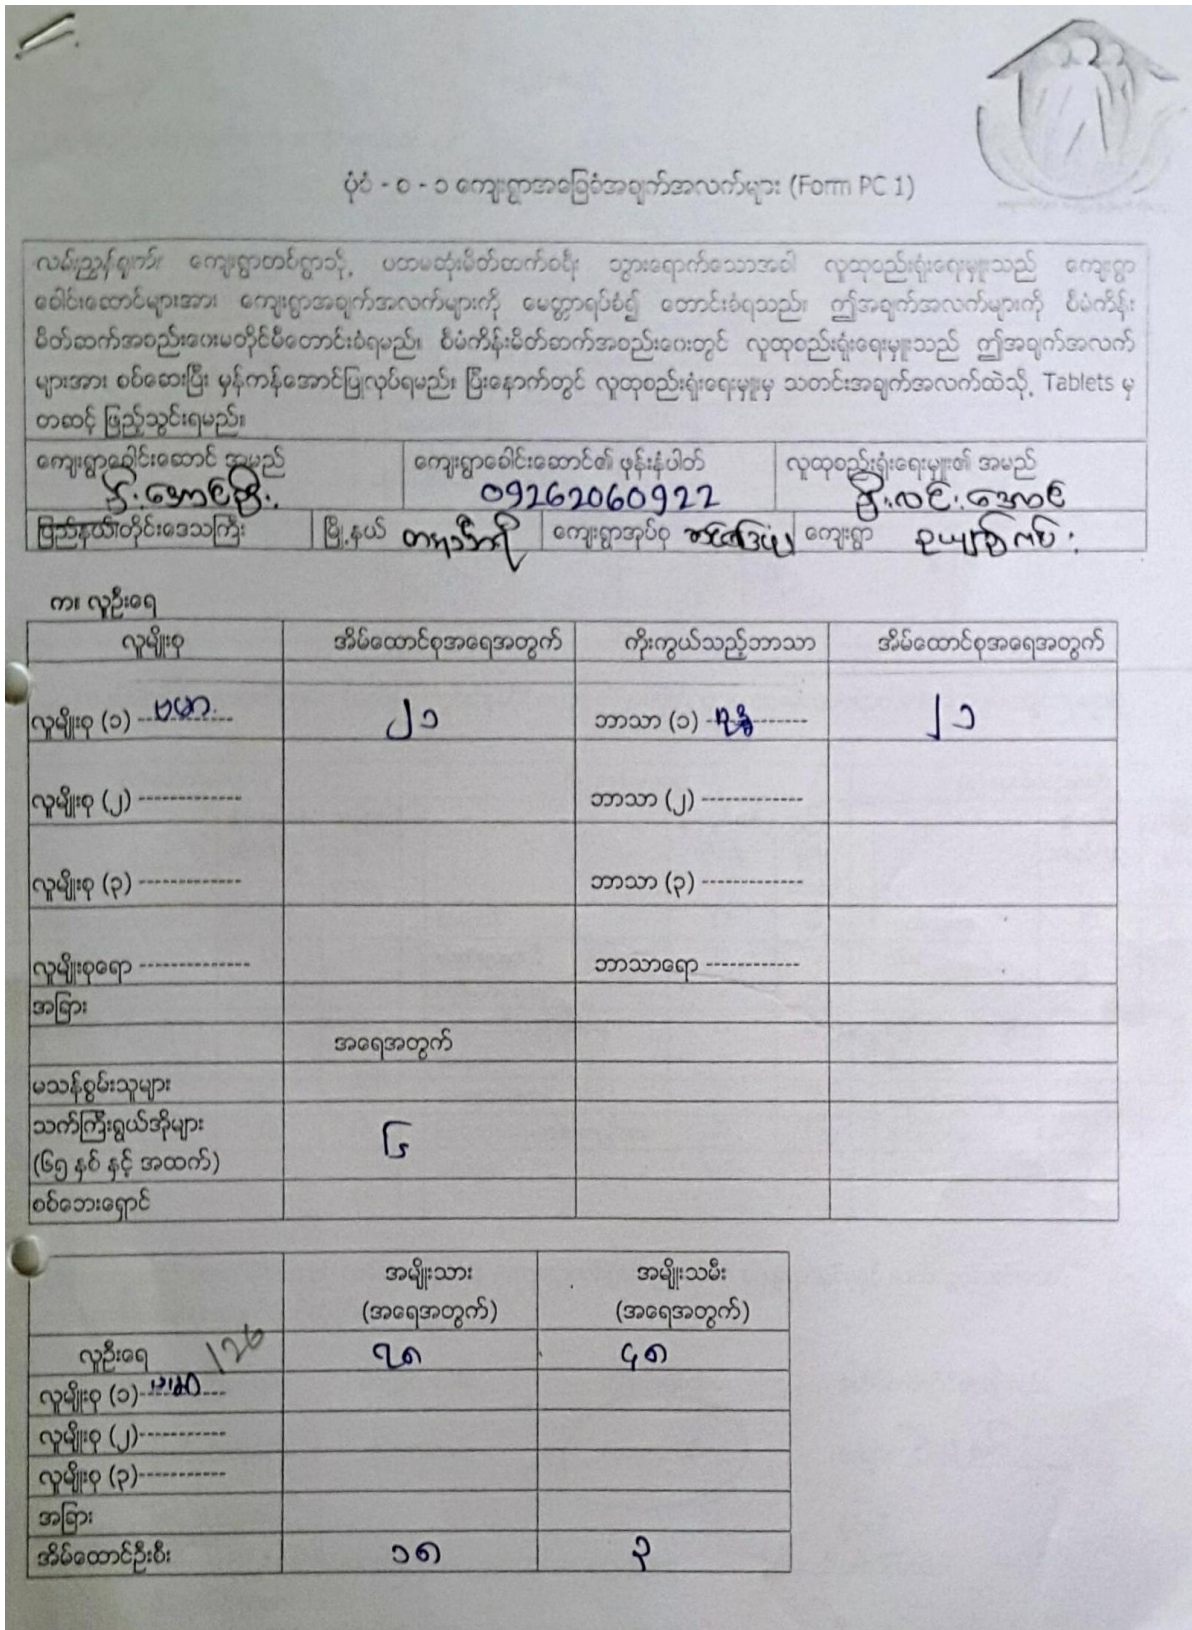 ပုံစံ - ၀ - ၁ ကျေးရွာအခြေခံအချက်အလက်များ (Form PC 1)
လမ်းညွှန်ချက်။ ကျေးရွာတစ်ရွာသို့ ပထမဆုံးမိတ်ဆက်ခရီး သွားရောက်သောအခါ လူထုစည်းရုံးရေးမှူးသည် ကျေးရွာ
ခေါင်းဆောင်များအား ကျေးရွာအချက်အလက်များကို မေတ္တာရပ်ခံ၍ တောင်းခံရသည်။ ဤအချက်အလက်များကို စီမံကိန်း
မိတ်ဆက်အစည်းဝေးမတိုင်မီတောင်းခံရမည်။ စီမံကိန်းမိတ်ဆက်အစည်းဝေးတွင် လူထုစည်းရုံးရေးမှူးသည် ဤအချက်အလက်
များအား စစ်ဆေးပြီး မှန်ကန်အောင်ပြုလုပ်ရမည်။ ပြီးနောက်တွင် လူထုစည်းရုံးရေးမှူးမှ သတင်းအချက်အလက်ထဲသို့ Tablets မှ
တဆင့် ဖြည့်သွင်းရမည်။
ကျေးရွာခေါင်းဆောင် အမည် ကျေးရွာခေါင်းဆောင်၏ ဖုန်းနံပါတ် လူထုစည်းရုံးရေးမှူး၏ အမည်
ဦးအောင်ကြီး 09262060922 ဦးလင်းအောင်
ပြည်နယ်၊တိုင်းဒေသကြီး မြို့နယ် တနင်္သာရီ ကျေးရွာအုပ်စု ကျေးရွာ
က။ လူဦးရေ
လူမျိုးစု အိမ်ထောင်စုအရေအတွက် ကိုးကွယ်သည့်ဘာသာ အိမ်ထောင်စုအရေအတွက်
လူမျိုးစု (၁) ဗမာ ၂၁ ဘာသာ (၁) ဗုဒ္ဓ ၂၁
လူမျိုးစု (၂) ------------- ဘာသာ (၂) -------------
လူမျိုးစု (၃) ------------- ဘာသာ (၃) -------------
လူမျိုးစုရော -------------- ဘာသာရော ------------
အခြား
အရေအတွက်
မသန်စွမ်းသူများ
သက်ကြီးရွယ်အိုများ
(၆၅ နှစ် နှင့် အထက်) ၆
စစ်ဘေးရှောင်
အမျိုးသား အမျိုးသမီး
(အရေအတွက်) (အရေအတွက်)
လူဦးရေ 126 ၇၈ ၄၈
လူမျိုးစု (၁) ဗမာ
လူမျိုးစု (၂)-----------
လူမျိုးစု (၃)-----------
အခြား
အိမ်ထောင်ဦးစီး ၁၈ ၃